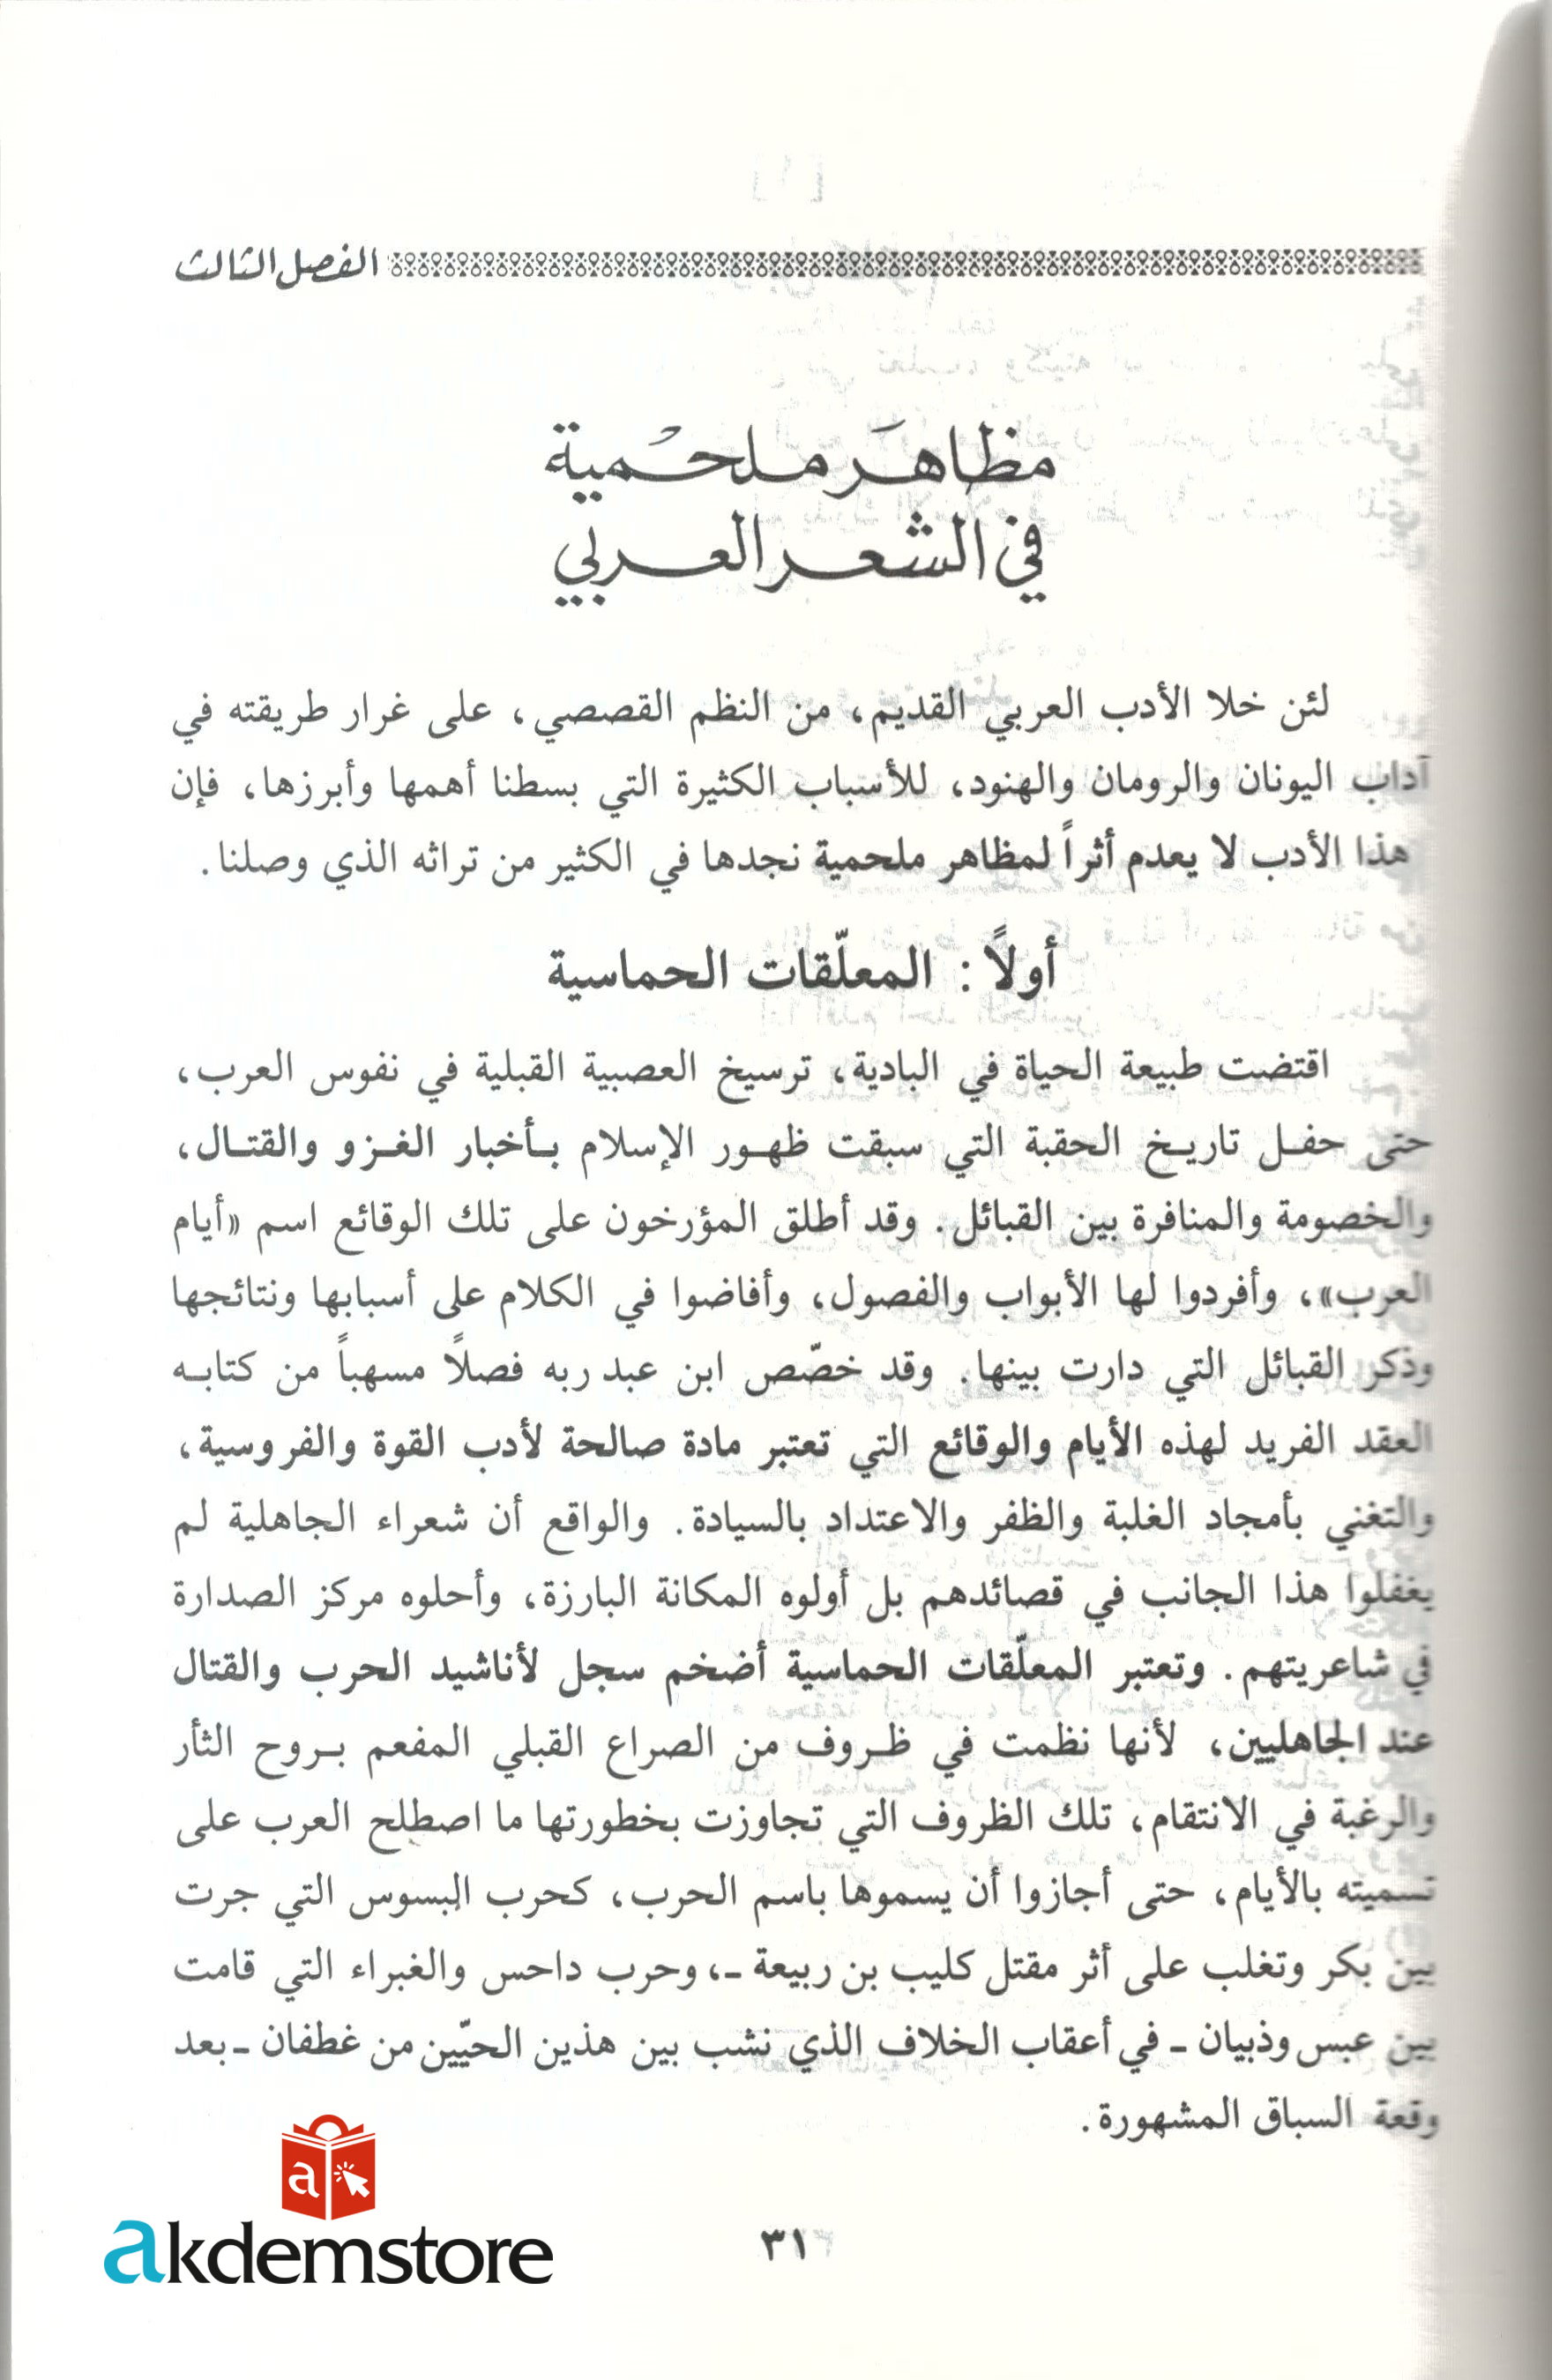 الفصل الثالث
مظاهَر ملحْمية
في الشعر العربي
لئن خلا الأدب العربي القديم، من النظم القصصي، على غرار طريقته في
آداب اليونان والرومان والهنود، للأسباب الكثيرة التي بسطنا أهمها وأبرزها، فإن
هذا الأدب لا يعدم أثراً لمظاهر ملحمية نجدها في الكثير من تراثه الذي وصلنا.
أولاً : المعلّقات الحماسية
اقتضت طبيعة الحياة في البادية، ترسيخ العصبية القبلية في نفوس العرب،
حتى حفل تاريخ الحقبة التي سبقت ظهور الإسلام بأخبار الغزو والقتال،
والخصومة والمنافرة بين القبائل. وقد أطلق المؤرخون على تلك الوقائع اسم «أيام
العرب»، وأفردوا لها الأبواب والفصول، وأفاضوا في الكلام على أسبابها ونتائجها
وذكر القبائل التي دارت بينها. وقد خصّص ابن عبد ربه فصلاً مسهباً من كتابه
العقد الفريد لهذه الأيام والوقائع التي تعتبر مادة صالحة لأدب القوة والفروسية،
والتغني بأمجاد الغلبة والظفر والاعتداد بالسيادة. والواقع أن شعراء الجاهلية لم
يغفلوا هذا الجانب في قصائدهم بل أولوه المكانة البارزة، وأحلوه مركز الصدارة
في شاعريتهم. وتعتبر المعلّقات الحماسية أضخم سجل لأناشيد الحرب والقتال
عند الجاهليين، لأنها نظمت في ظروف من الصراع القبلي المفعم بروح الثأر
والرغبة في الانتقام، تلك الظروف التي تجاوزت بخطورتها ما اصطلح العرب على
تسميته بالأيام، حتى أجازوا أن يسموها باسم الحرب، كحرب البسوس التي جرت
بين بكر وتغلب على أثر مقتل كليب بن ربيعة ـ، وحرب داحس والغبراء التي قامت
بين عبس وذبيان ـ في أعقاب الخلاف الذي نشب بين هذين الحيّين من غطفان ـ بعد
وقعة السباق المشهورة.
a
akdemstore
٣١